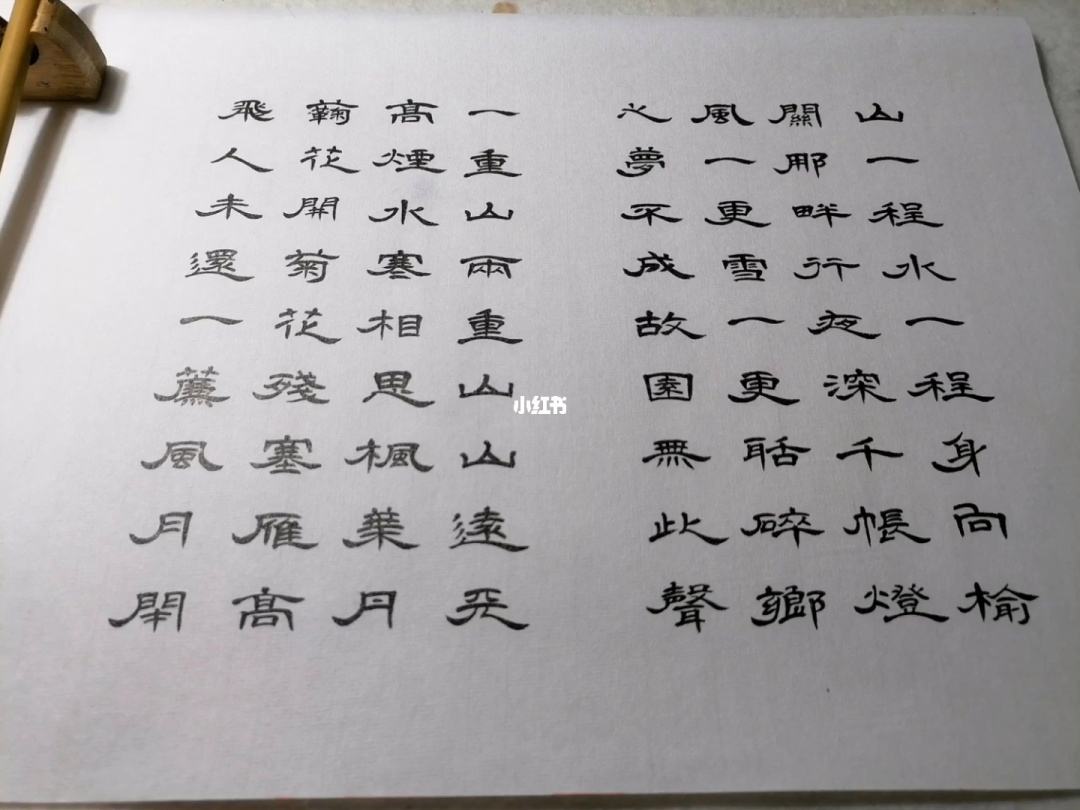 山一程水一程身向榆
關那畔行夜深千帳燈
風一更雪一更聒碎鄉
心夢不成故園無此聲
一重山兩重山山遠天
高煙水寒相思楓葉丹
蘜花開菊花殘塞雁高
飛人未還一簾風月閑
小红书